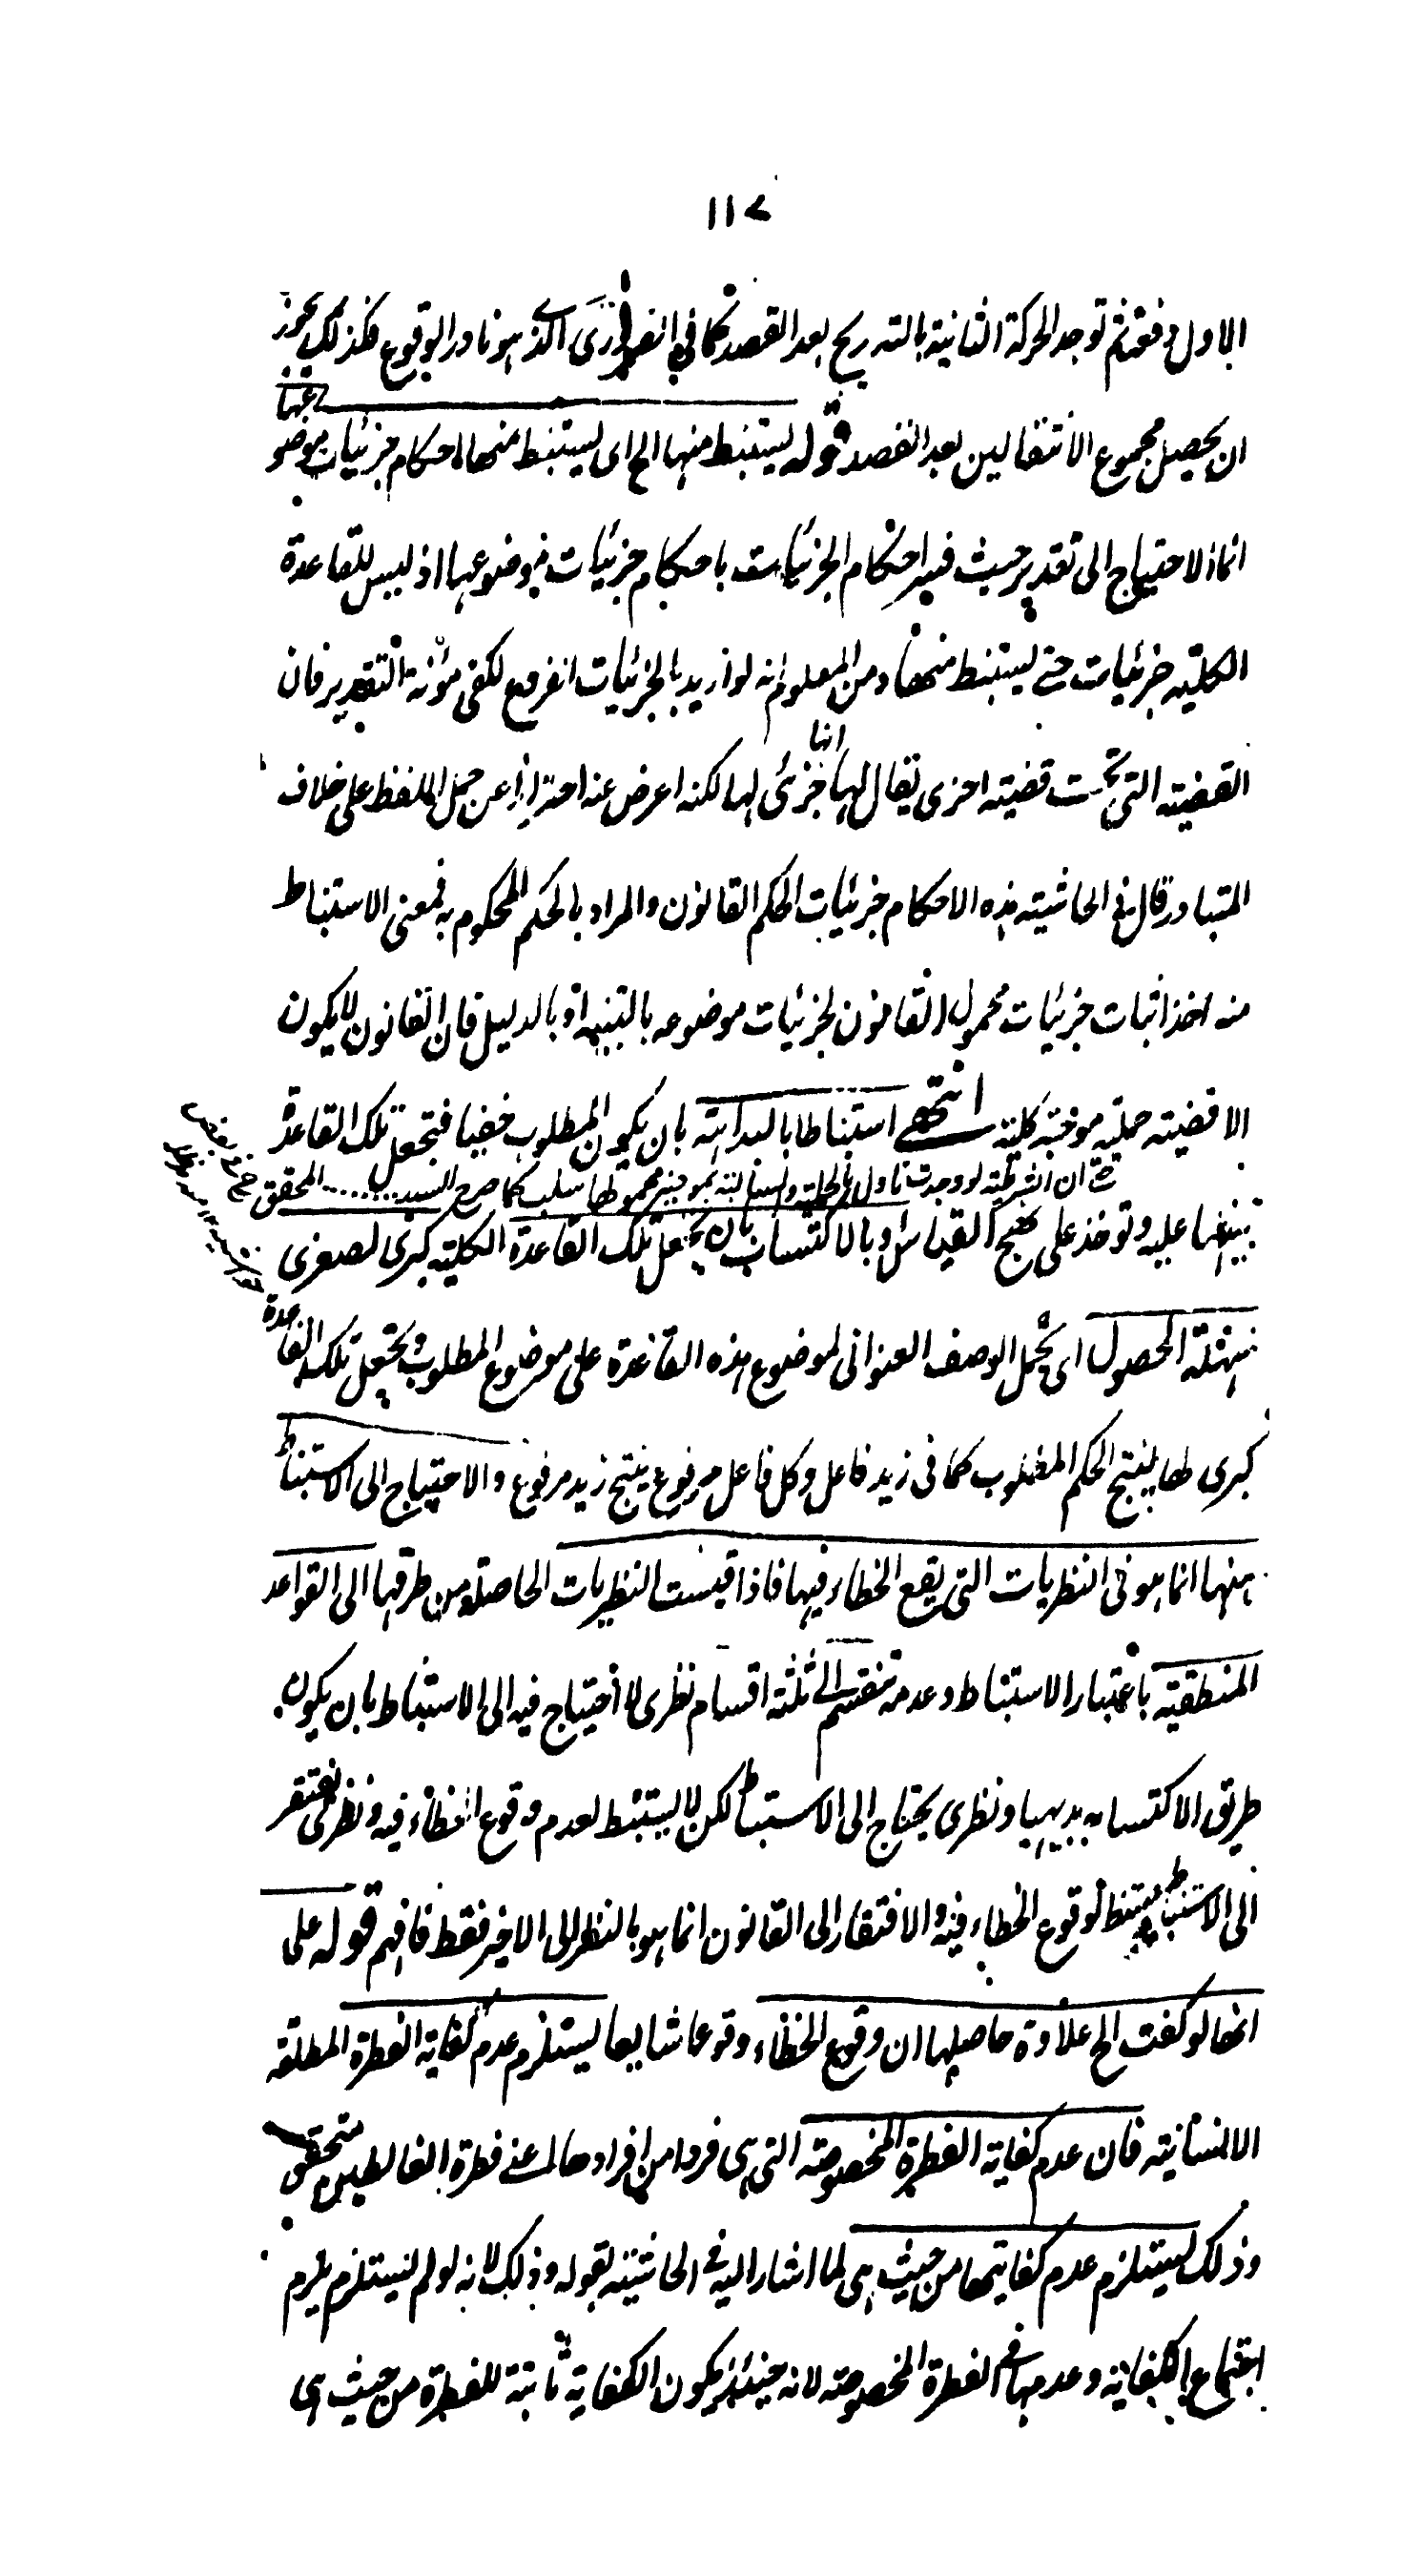 ١١٧
الاول دفعة ثم توجد الحركة الثانية بالتدريج بعد القصد كما في الضروري الذي هو نادر الوقوع فكذلك يجوز
ان يحصل مجموع الانتقالين بعد القصد قوله ليستنبط منها الخ اى ليستنبط منها احكام جزئيات موضوعها
انما الاحتياج الى تقدير حيث فسر احكام الجزئيات باحكام جزئيات موضوعها اذ ليس للقاعدة
الكلية جزئيات حتى ليستنبط منها ومن المعلوم انه لو اريد بالجزئيات الفروع لكفى مؤنة التقدير فان
القضية التى تحت قضية اخرى يقال لها انها جزئى لها لكنه اعرض عنه احترازا عن حمل اللفظ على خلاف
المتبادر قال في الحاشية هذه الاحكام جزئيات الحكم القانون والمراد بالحكم المحكوم به فمعنى الاستنباط
منه اخذ اثبات جزئيات محمول القانون لجزئيات موضوعه بالتنبيه او بالدليل فان القانون لا يكون
الا قضية حملية موجبة كلية انتهى استنباطا بالبداهة بان يكون المطلوب خفيا فتجعل تلك القاعدة
ان الشرطية لو وجدت تاول بالحملية والسالبة بموجبة محمولها سلب كما صرح السيد ........ المحقق
تنبيها عليه وتوخذ على نهج القياس او بالاكتساب بان يجعل تلك القاعدة الكلية كبرى لصغرى
سهلة الحصول اى يحمل الوصف العنوانى لموضوع هذه القاعدة على موضوع المطلوب ويجعل تلك القاعدة
كبرى لها لينتج الحكم المطلوب كما فى زيد فاعل وكل فاعل مرفوع ينتج زيد مرفوع والاحتياج الى الاستنباط
منها انما هو فى النظريات التى يقع الخطاء فيها فاذا قيست النظريات الحاصلة من طرقها الى القواعد
المنطقية باعتبار الاستنباط وعدمه تنقسم الى ثلثة اقسام نظرى لا احتياج فيه الى الاستنباط بان يكون
طريق الاكتسابه بديهيا ونظرى يحتاج الى الاستنباط لكن لا يستنبط لعدم وقوع الخطاء فيه ونظرى يفتقر
الى الاستنباط يستنبط لوقوع الخطاء فيه والافتقار الى القانون انما هو بالنظر الى الاخير فقط فافهم قوله على
انها لو كفت الخ علاوة حاصلها ان وقوع الخطاء وقوعا شايعا ليستلزم عدم كفاية الفطرة المطلقة
الانسانية فان عدم كفاية الفطرة المخصوصة التى هى فردا من افرادها لمعنى فطرة الغالطين متحقق
وذلك ليستلزم عدم كفايتها من حيث هى لما اشار اليه فى الحاشية بقوله وذلك لانه لو لم ليستلزم يلزم
اجتماع الكفاية وعدمها فى الفطرة المخصوصة لانه حينئذ يكون الكفاية ثابتة للفطرة من حيث هى